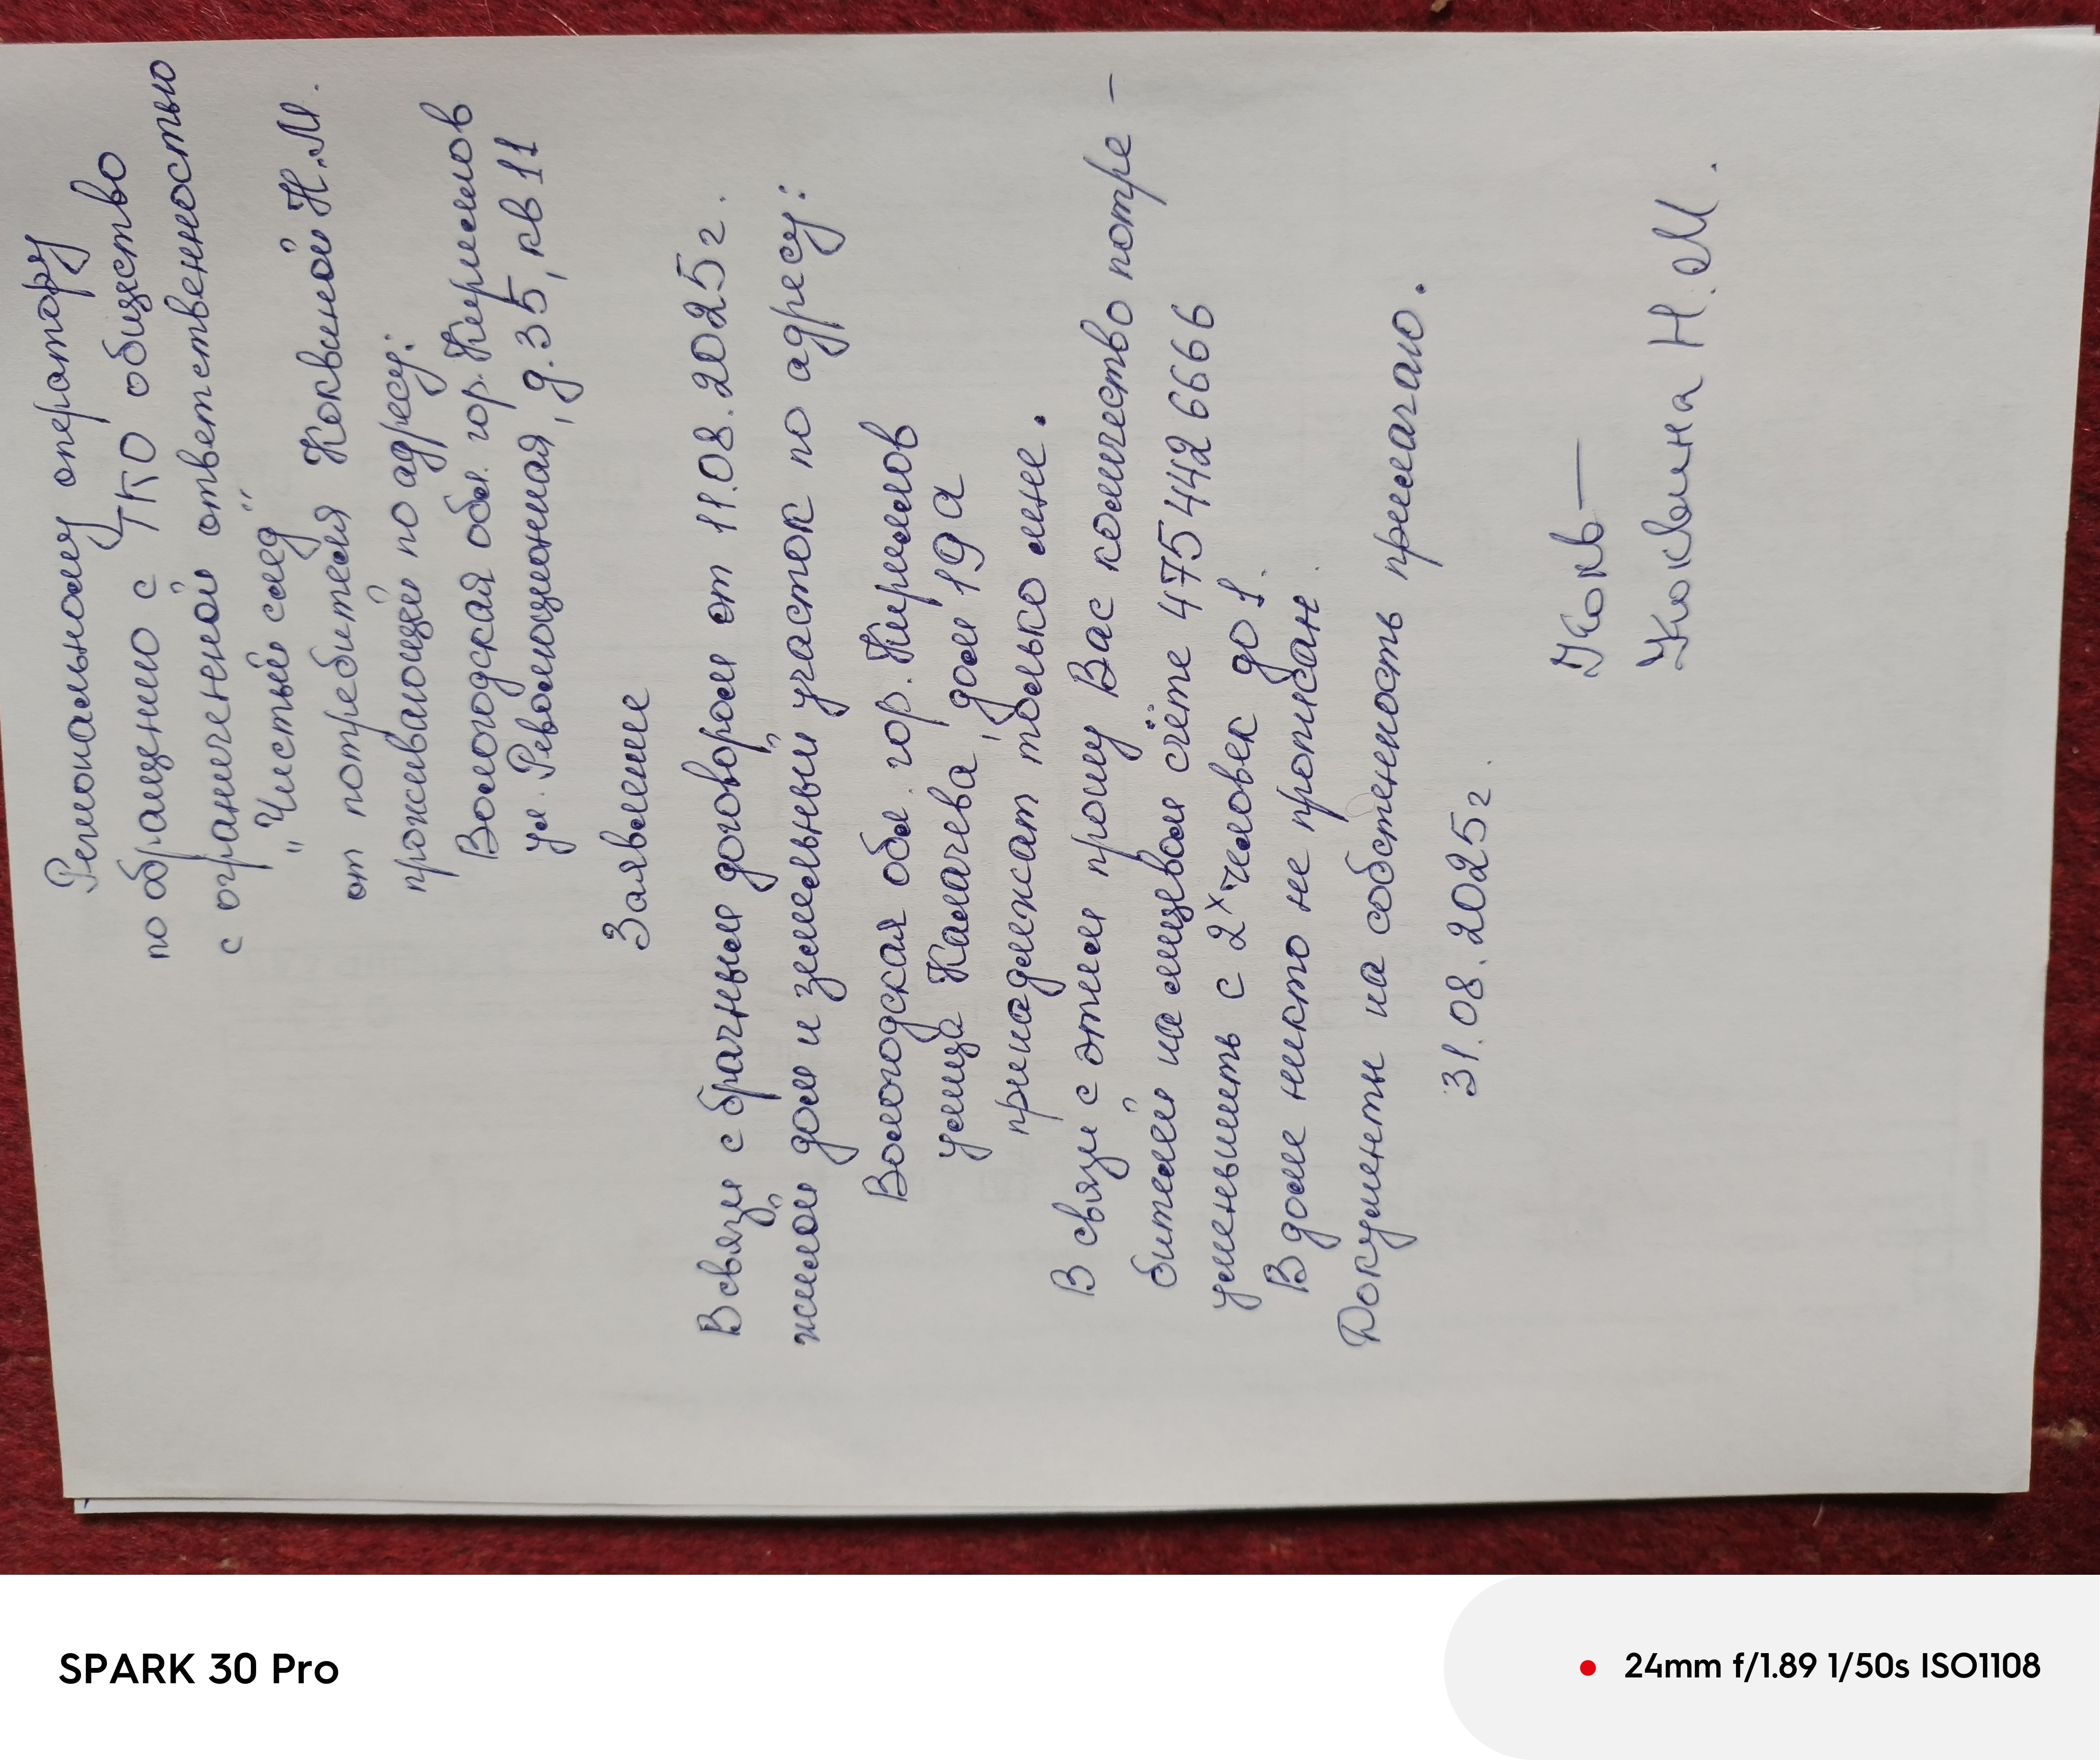 Региональному оператору
по обращению с ТКО общество
с ограниченной ответственностью
"Чистый след"
от потребителя Коквиной Н.М.
проживающей по адресу:
Вологодская обл. гор. Кириллов
ул. Революционная, д. 35, кв 11
Заявление
В связи с брачным договором от 11.08.2025 г.
жилой дом и земельный участок по адресу:
Вологодская обл. гор. Кириллов
улица Калачева, дом 19 а
принадлежат только мне.
В связи с этим прошу Вас количество потре-
бителей на лицевом счёте 4754426666
уменьшить с 2х человек до 1.
В доме никто не прописан.
Документы на собственность прилагаю.
31.08.2025 г.
Кокв
Коквина Н.М.
SPARK 30 Pro
24mm f/1.89 1/50s ISO1108